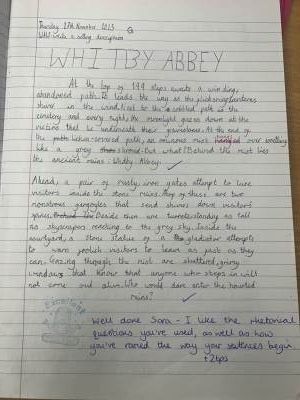 Thursday 17th November, 2023
WALT write a setting description
WHITBY ABBEY
At the top of 199 steps awaits a winding,
abandoned path. It leads the way as the flickering lanterns
shine in the wind. Next to the cobbled path is the
cemetery and every night, the moonlight glares down at the
victims that lie underneath their gravestones. At the end of
the path an ominous mist hangs over
like a grey shroud. But what? Behind the mist lies
the ancient ruins: Whitby Abbey.
Ahead, a pair of rusty, iron gates attempt to lure
visitors inside the stone ruins. Atop of these are two
monstrous gargoyles that send shivers down visitors'
spines. Beside them are turrets standing as tall
as skyscrapers reaching to the grey sky. Inside the
courtyard, a stone statue of a gladiator attempts
to warn foolish visitors to leave as fast as they
can. Gazing through the mist are shattered, grimy
windows that know that anyone who steps in will
not come out alive. Who would dare enter the haunted
ruins?
Excellent
Well done Sara - I like the rhetorical
questions you've used, as well as how
you've varied the way your sentences begin
+2hps